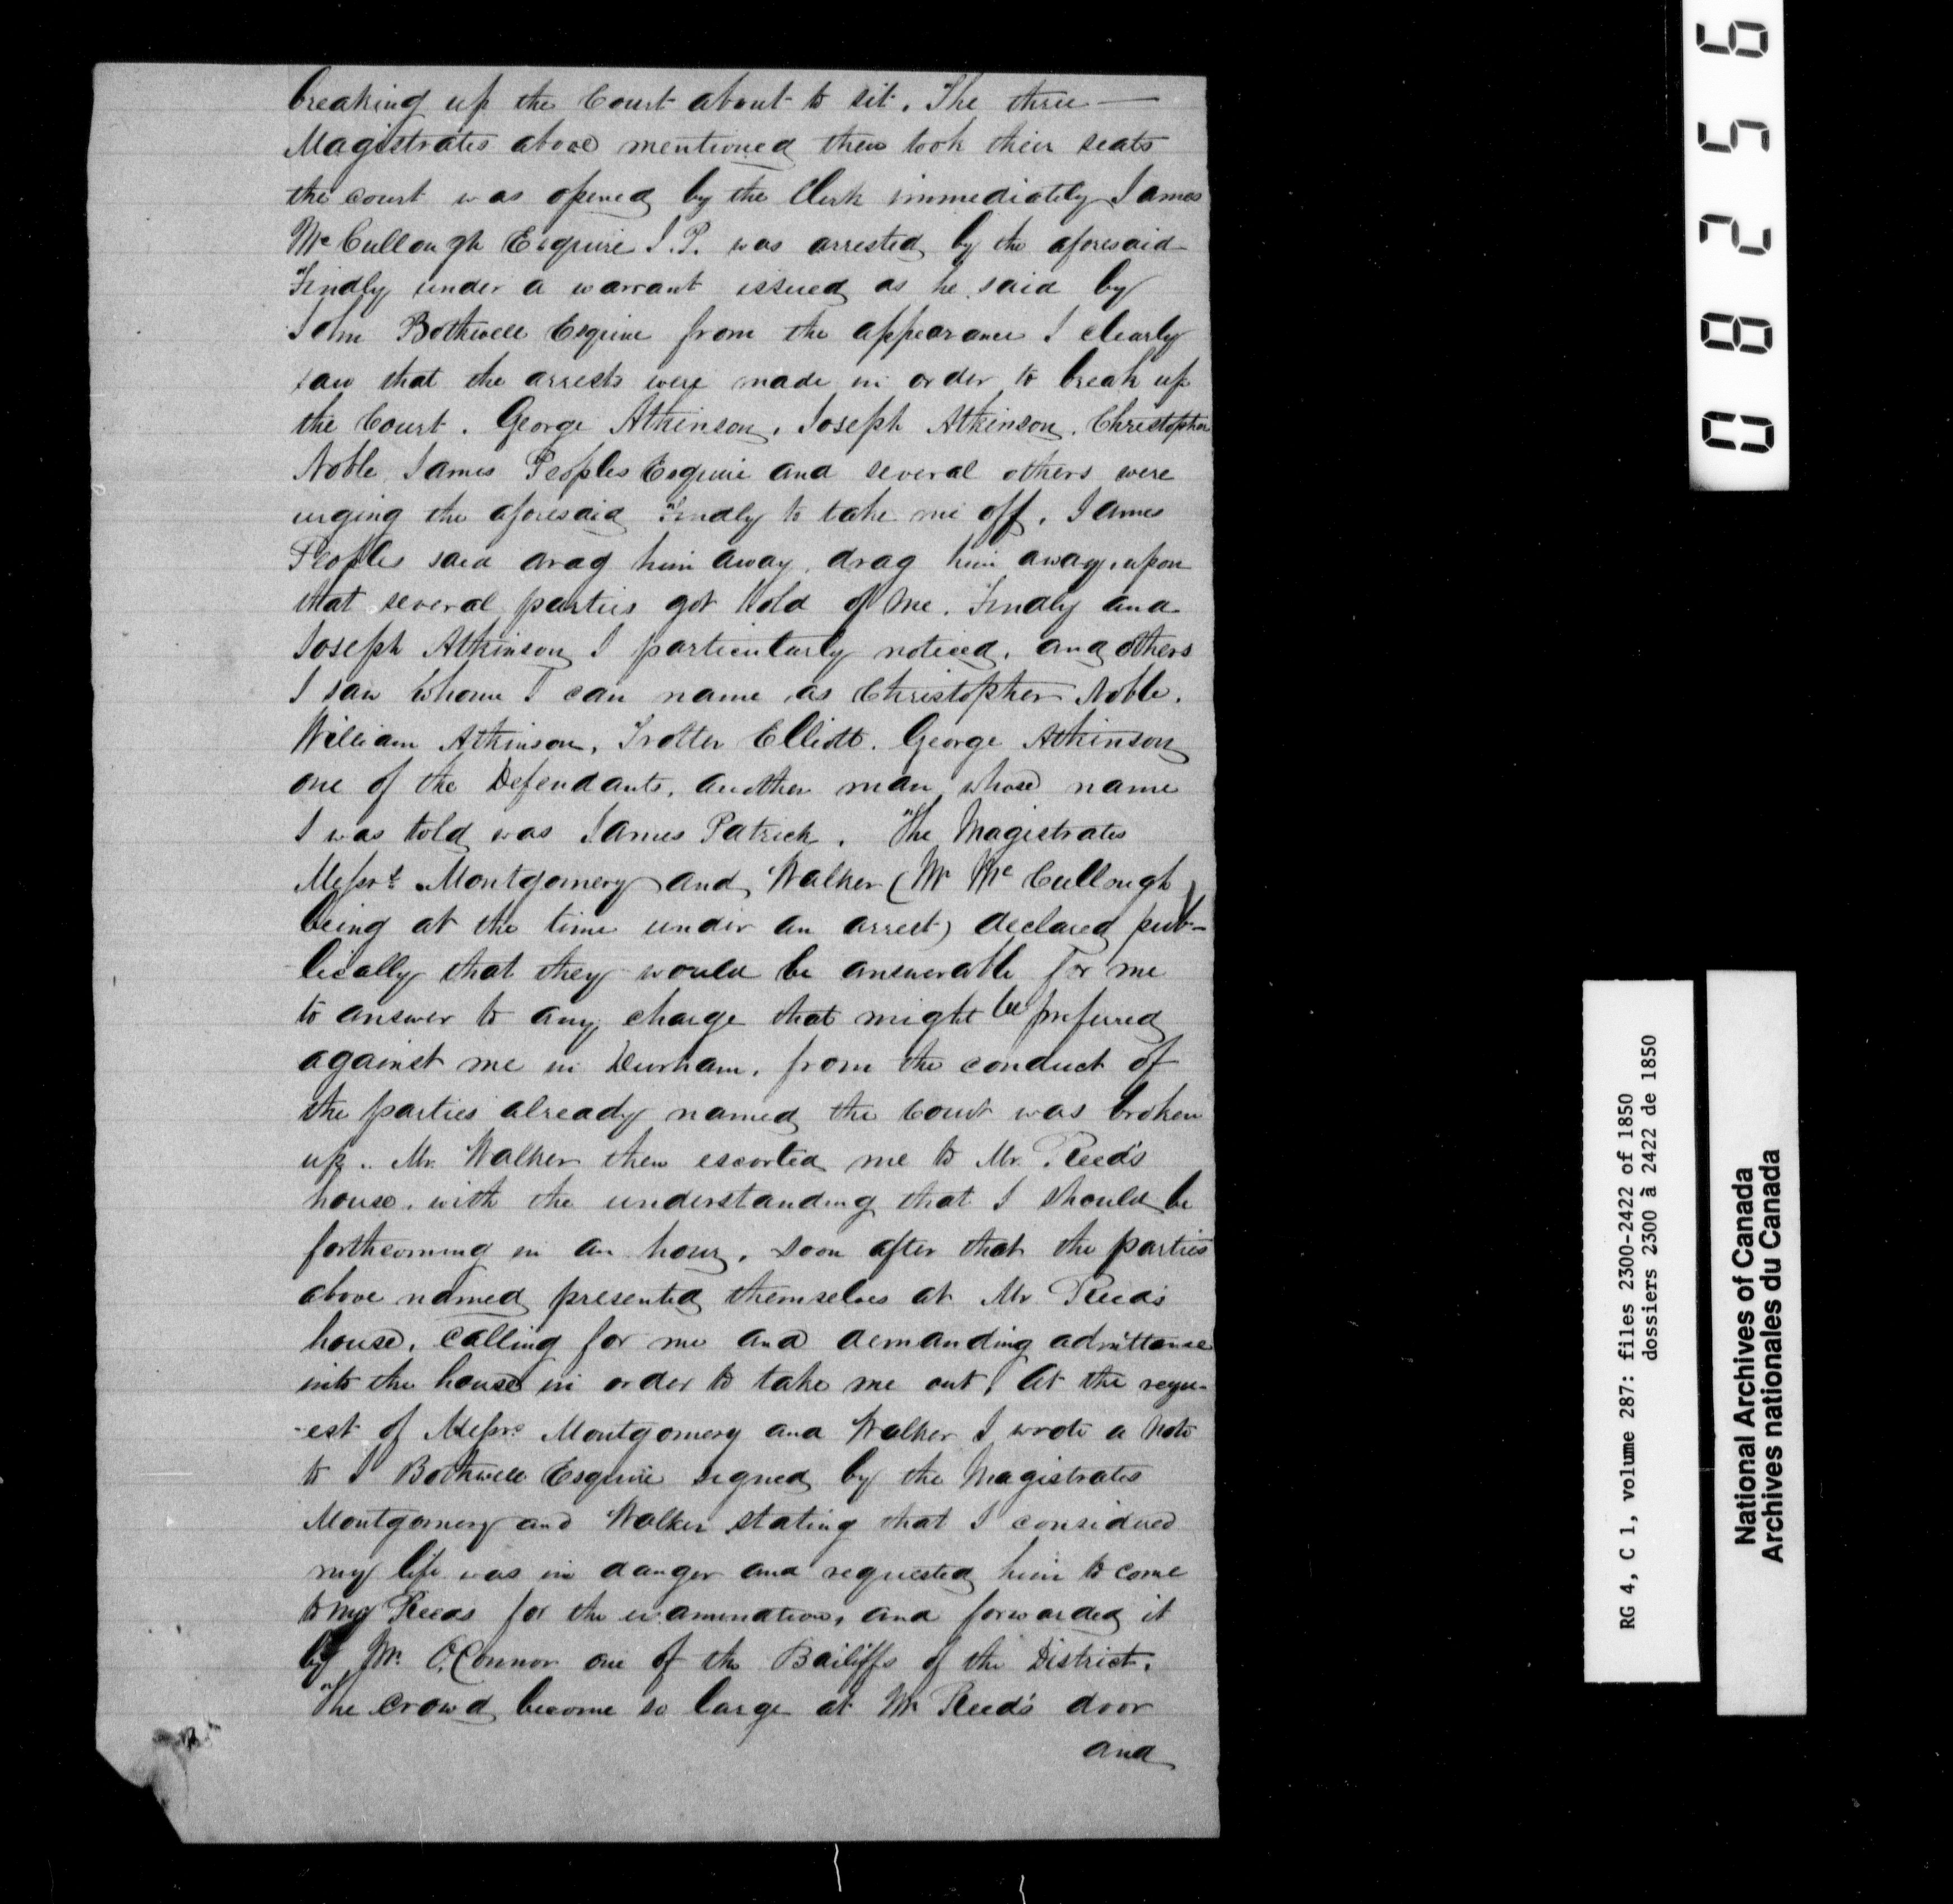 breaking up the Court about to sit. The three —
Magistrates above mentioned then took their seats
the court was opened by the Clerk immediately James
McCullough Esquire J.P. was arrested by the aforesaid
Findly under a warrant issued as he said by
John Bothwell Esquire from the appearance I clearly
saw that the arrests were made in order to break up
the Court. George Atkinson, Joseph Atkinson, Christopher
Noble, James Peoples Esquire and several others were
urging the aforesaid Findly to take me off. James
Peoples said drag him away, drag him away, upon
that several parties got hold of me. Findly and
Joseph Atkinson I particularly noticed, and others
I saw whom I can name as Christopher Noble,
William Atkinson, Trotter Elliott. George Atkinson
one of the Defendants, another man whose name
I was told was James Patrick. The Magistrates
Messrs. Montgomery and Walker (Mr McCullough
being at the time under an arrest) declared pub-
lically that they would be answerable for me
to answer to any charge that might be preferred
against me in Durham, from the conduct of
the parties already named the Court was broken
up. Mr. Walker then escorted me to Mr. Reed's
house, with the understanding that I should be
forthcoming in an hour, soon after that the parties
above named presented themselves at Mr Reed's
house, calling for me and demanding admittance
into the house in order to take me out, At the requ-
-est of Messrs Montgomery and Walker I wrote a note
to J Bothwell Esquire signed by the Magistrates
Montgomery and Walker stating that I considered
my life was in danger and requested him to come
to Reeds for the examination, and forwarded it
by Mr. O'Connor one of the Bailiffs of the District.
The crowd become so large at Mr Reed's door
and
08256
RG 4, C 1, volume 287: files 2300-2422 of 1850
dossiers 2300 à 2422 de 1850
National Archives of Canada
Archives nationales du Canada